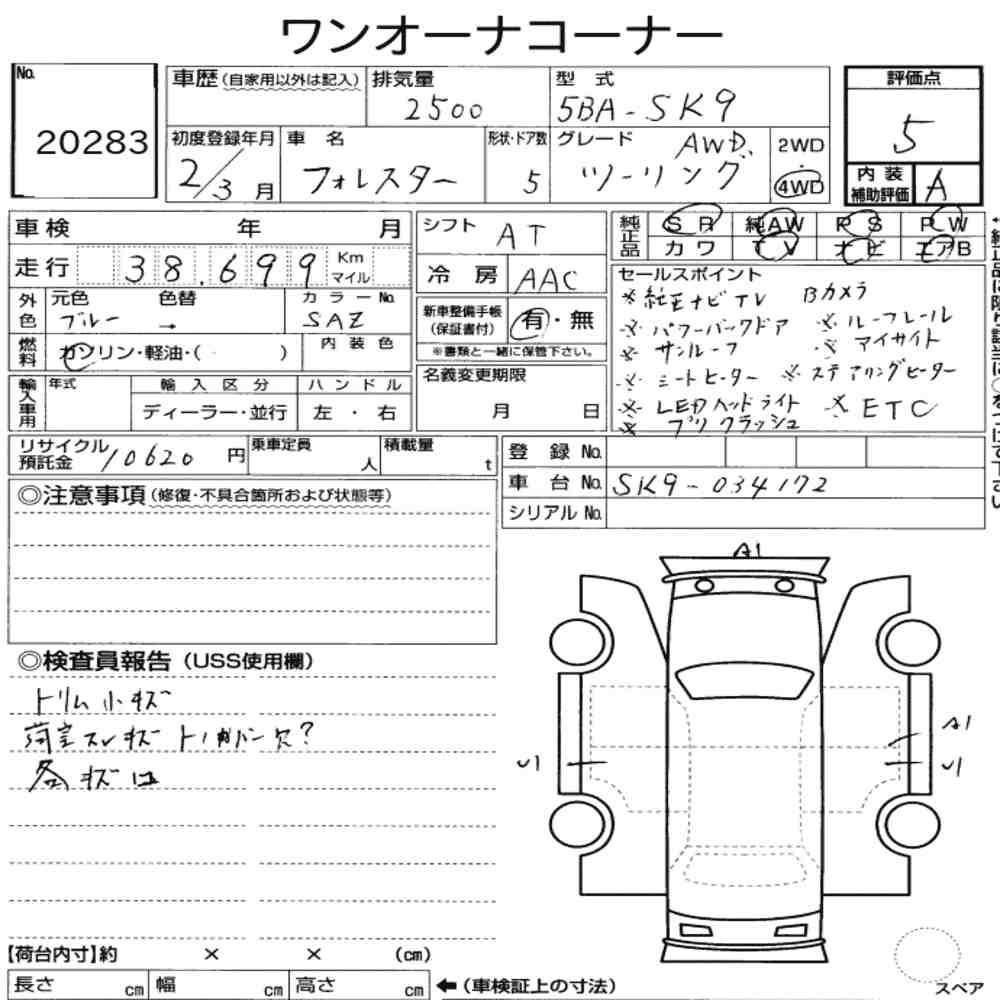 ワンオーナコーナー
No.
20283
車歴(自家用以外は記入)
排気量
2500
型 式
5BA-SK9
初度登録年月
2/3月
車 名
フォレスター
形状・ドア数
5
グレード
AWD
ツーリング
2WD
・
4WD
評価点
5
内 装
補助評価
A
車検 年 月
走行 38.699 Km
マイル
外
色
元色 色替 カラーNo.
ブルー → SAZ
燃
料
ガソリン・軽油・( )
内 装 色
輸
入
車
用
年式
輸 入 区 分
ハ ン ド ル
ディーラー・並行
左 ・ 右
シフト AT
冷 房 AAC
新車整備手帳
(保証書付)
有・無
※書類と一緒に保管下さい。
名義変更期限
月 日
純
正
品
SR 純AW PS PW
カワ TV ナビ エアB
セールスポイント
※純正ナビTV Bカメラ
※パワーバックドア ※ルーフレール
※サンルーフ ※アイサイト
※シートヒーター ※ステアリングヒーター
※LEDヘッドライト ※ETC
※プリクラッシュ
リサイクル
預託金
10620 円
乗車定員
人
積載量
t
登 録 No.
車 台 No. SK9-034172
シリアル No.
◎注意事項(修復・不具合箇所および状態等)
◎検査員報告(USS使用欄)
トリム小キズ
荷室スレキズ トノカバー欠?
各キズ
A1
A1
U1
U1
【荷台内寸】約 × × (cm)
長さ cm 幅 cm 高さ cm ←(車検証上の寸法)
スペア